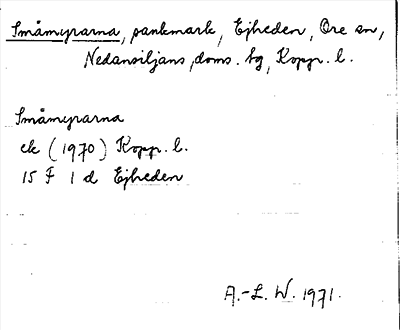 Småmyrarna, sankmark, Ejheden, Ore sn,
Nedansiljans doms. hg, Kopp. l.
Småmyrarna
ek (1970) Kopp. l.
15 F 1 d Ejheden
A.-L. W. 1971.